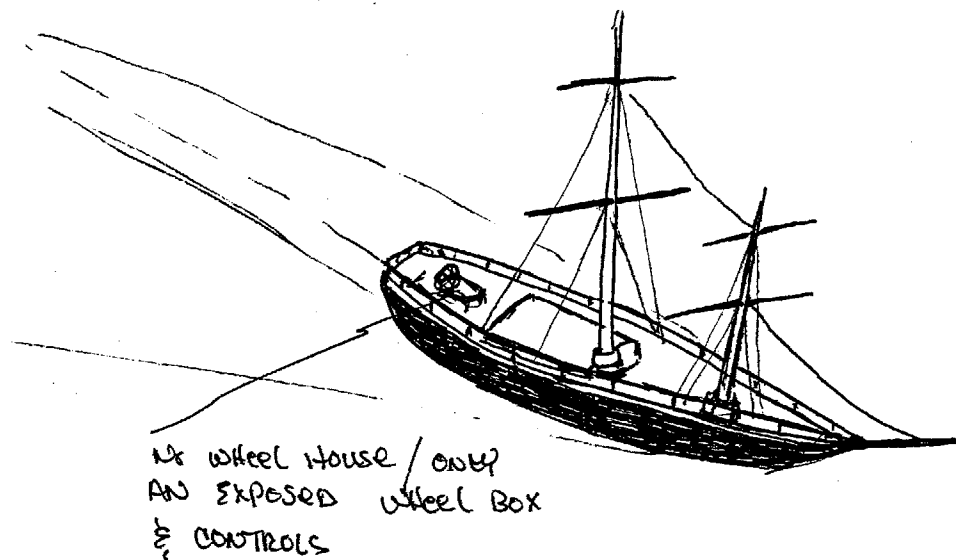 No WHEEL HOUSE / ONLY
AN EXPOSED WHEEL BOX
& CONTROLS